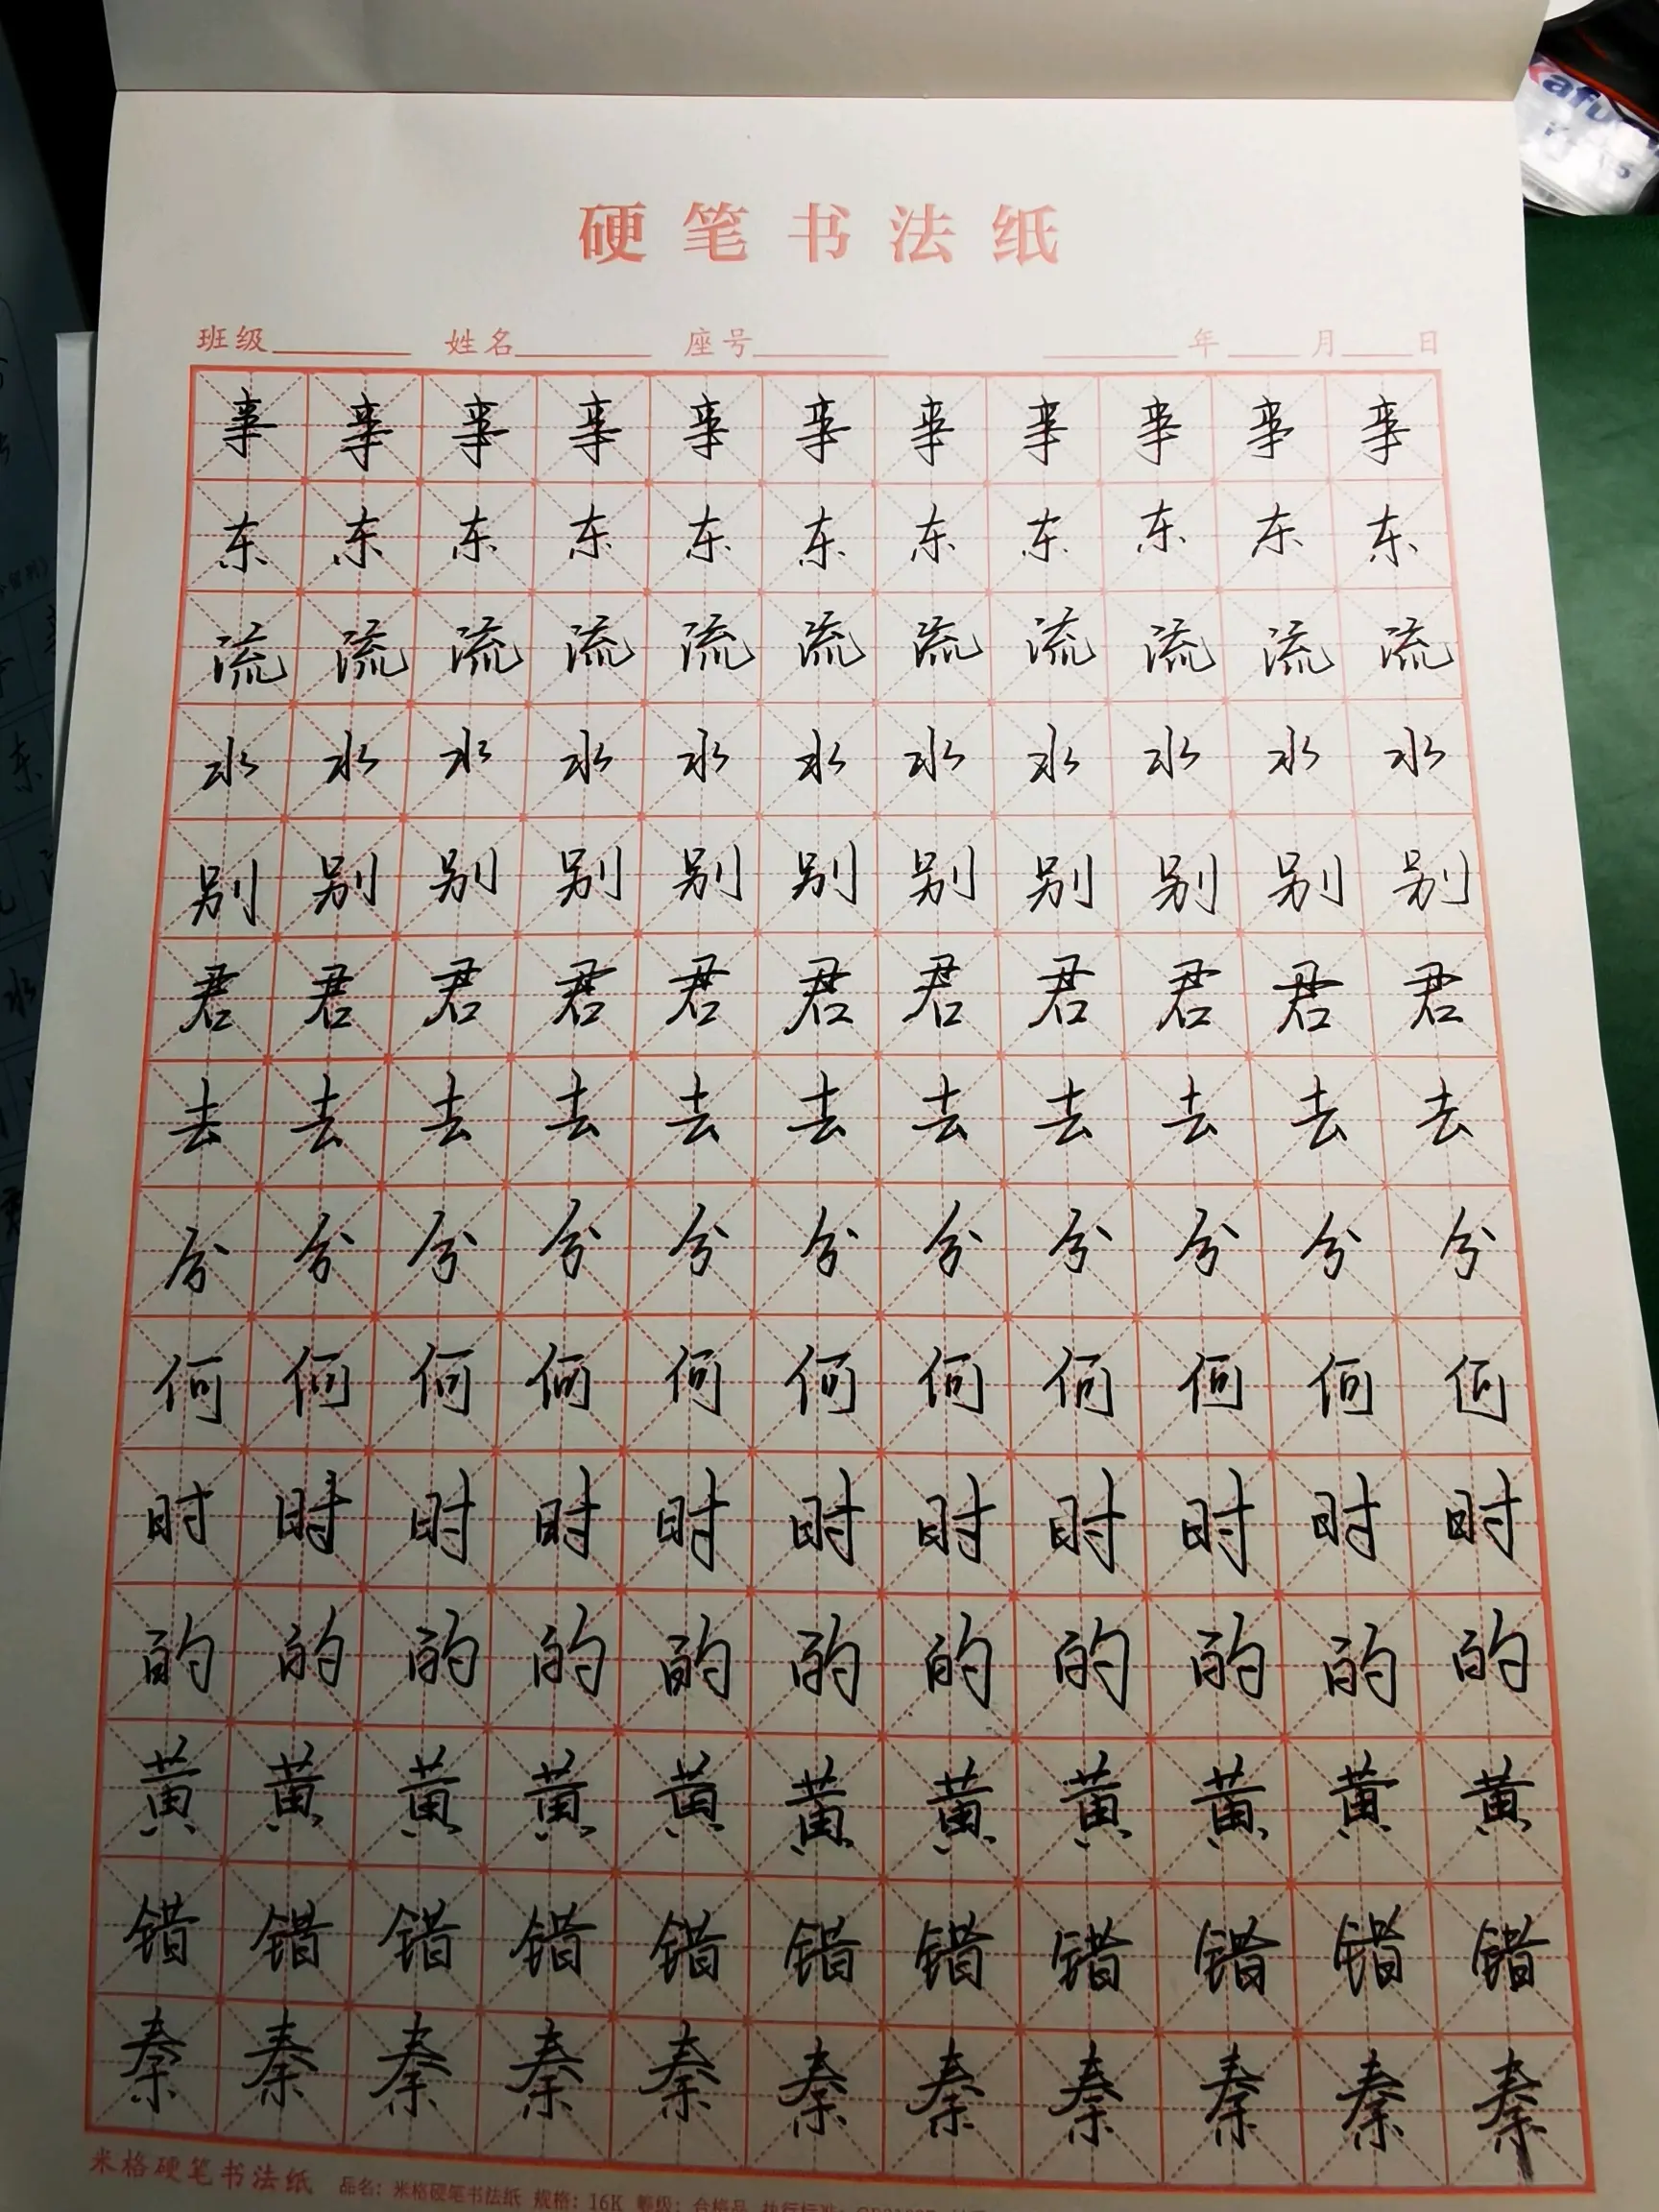 硬笔书法纸
班级 姓名 座号 年 月 日
事事事事事事事事事事事
东东东东东东东东东东东
流流流流流流流流流流流
水水水水水水水水水水水
别别别别别别别别别别别
君君君君君君君君君君君
去去去去去去去去去去去
兮兮兮兮兮兮兮兮兮兮兮
何何何何何何何何何何何
时时时时时时时时时时时
的的的的的的的的的的的
黄黄黄黄黄黄黄黄黄黄黄
错错错错错错错错错错错
秦秦秦秦秦秦秦秦秦秦秦
米格硬笔书法纸 品名：米格硬笔书法纸 规格：16K 等级：合格品 执行标准：